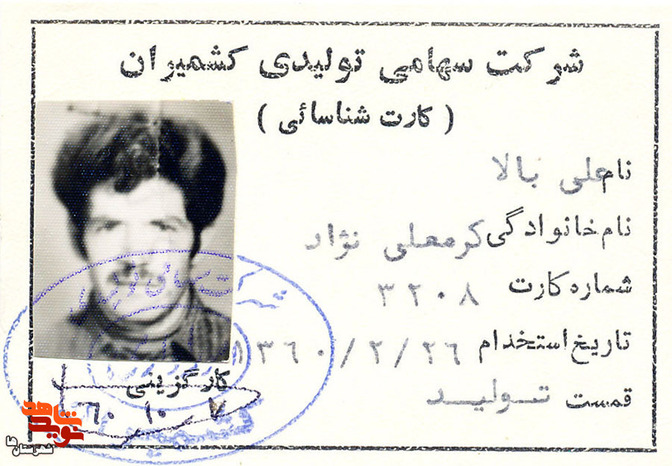 شرکت سهامی تولیدی کشمیران
( کارت شناسائی )
نام علی بالا
نام خانوادگی کرمعلی نژاد
شماره کارت ۳۲۰۸
تاریخ استخدام ۱۳۶۰/۲/۲۶
قسمت تولید
کارگزینی
۶۰ ۱۰ ۷
نوید شاهد
شهرستان ها